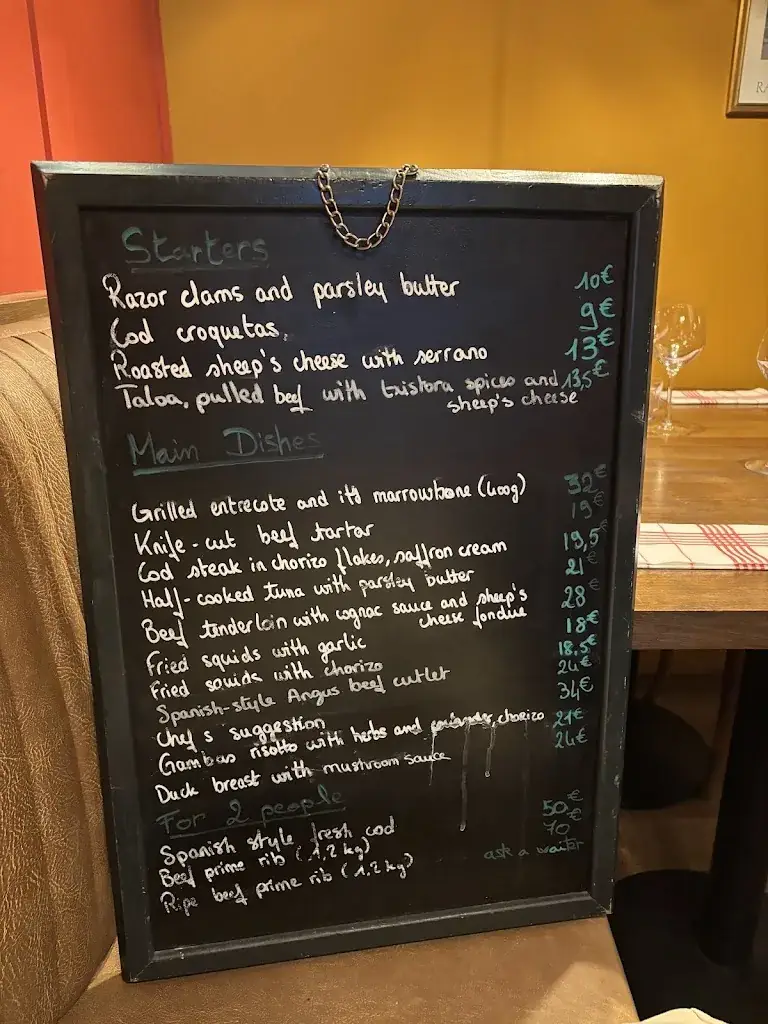 Starters
Razor clams and parsley butter 10€
Cod croquetas. 9€
Roasted sheep's cheese with serrano 13€
Taloa, pulled beef with txistora spices and 13,5€
sheep's cheese
Main Dishes
Grilled entrecote and its marrowbone (400g) 32€
Knife-cut beef tartar 19€
Cod steak in chorizo flakes, saffron cream 19,5€
Half-cooked tuna with parsley butter 21€
Beef tenderloin with cognac sauce and sheep's 28€
cheese fondue
Fried squids with garlic 18€
Fried squids with chorizo 18,5€
Spanish-style Angus beef cutlet 24€
Chef's suggestion 34€
Gambas risotto with herbs and coriander, chorizo 21€
Duck breast with mushroom sauce 24€
For 2 people
Spanish style fresh cod 50€
Beef prime rib (1,2 kg) 70€
Ripe beef prime rib (1,2 kg) ask a waiter
RA